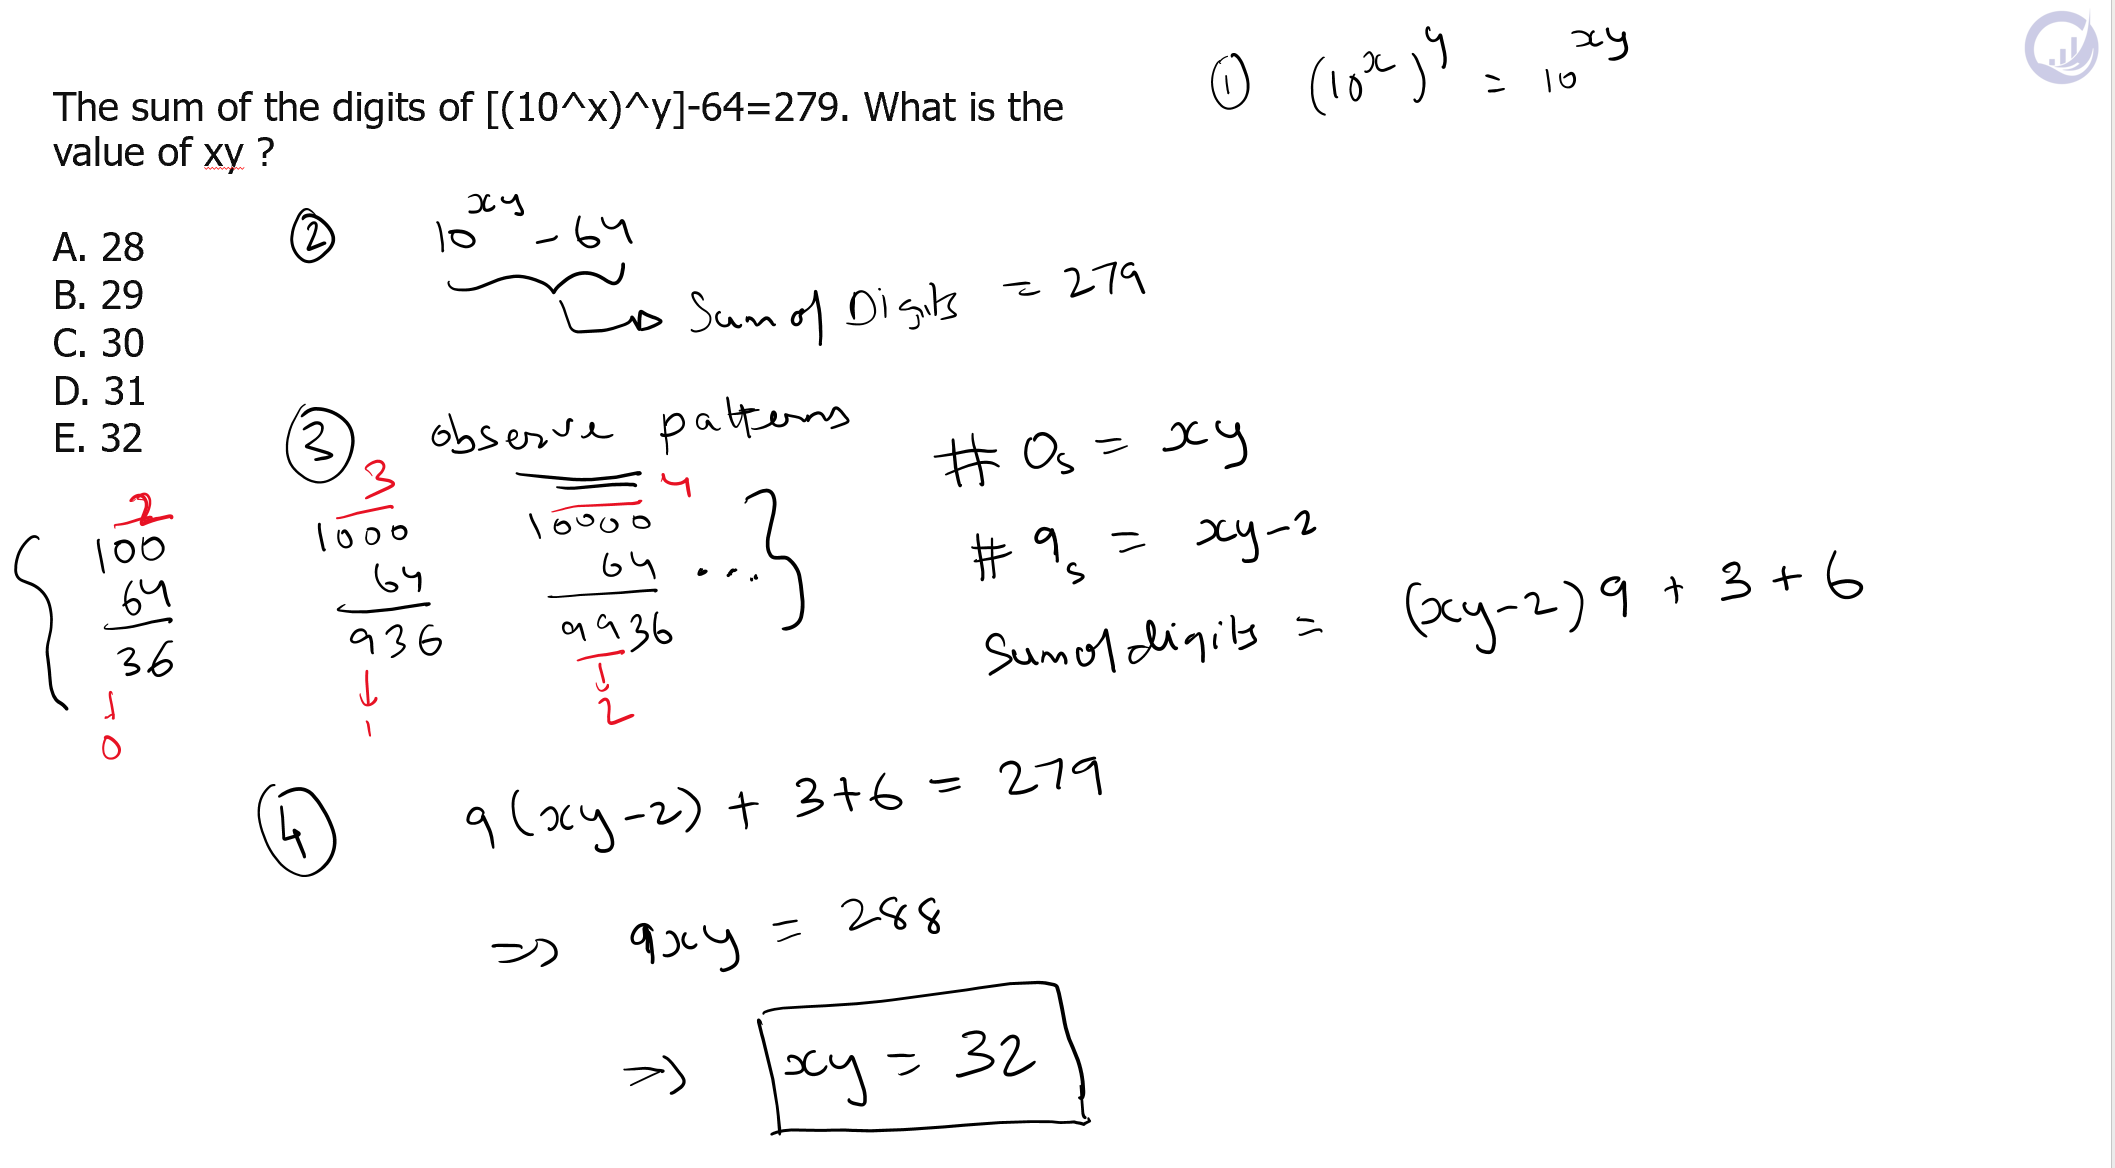 The sum of the digits of [(10^x)^y]-64=279. What is the
value of xy ?
A. 28
B. 29
C. 30
D. 31
E. 32
① (10^x)^y = 10^xy
② 10^xy - 64
Sum of Digits = 279
③ observe patterns
2
100
64
36
0
3
1000
64
936
1
4
10000
64
9936
2
...
# 0s = xy
# 9s = xy-2
Sum of digits = (xy-2)9 + 3 + 6
④ 9(xy-2) + 3+6 = 279
=> 9xy = 288
=> xy = 32